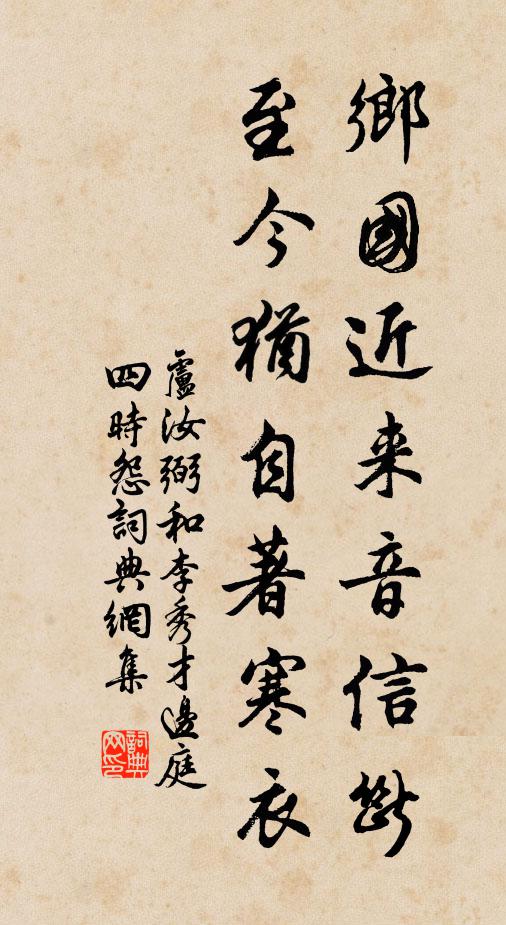 鄉國近来音信斷
至今猶自著寒衣
盧汝弼和李秀才邊庭
四時怨詞典網集
詞典網印